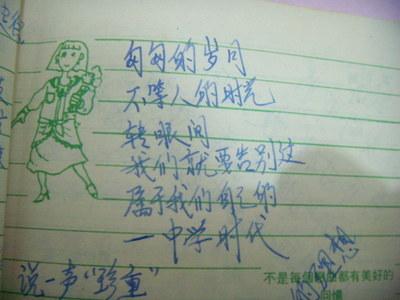 匆匆的岁月
不等人的时光
转眼间
我们就要告别这
属于我们自己的
一中学时代
说一声“珍重”
不是每個 都有美好的
回憶